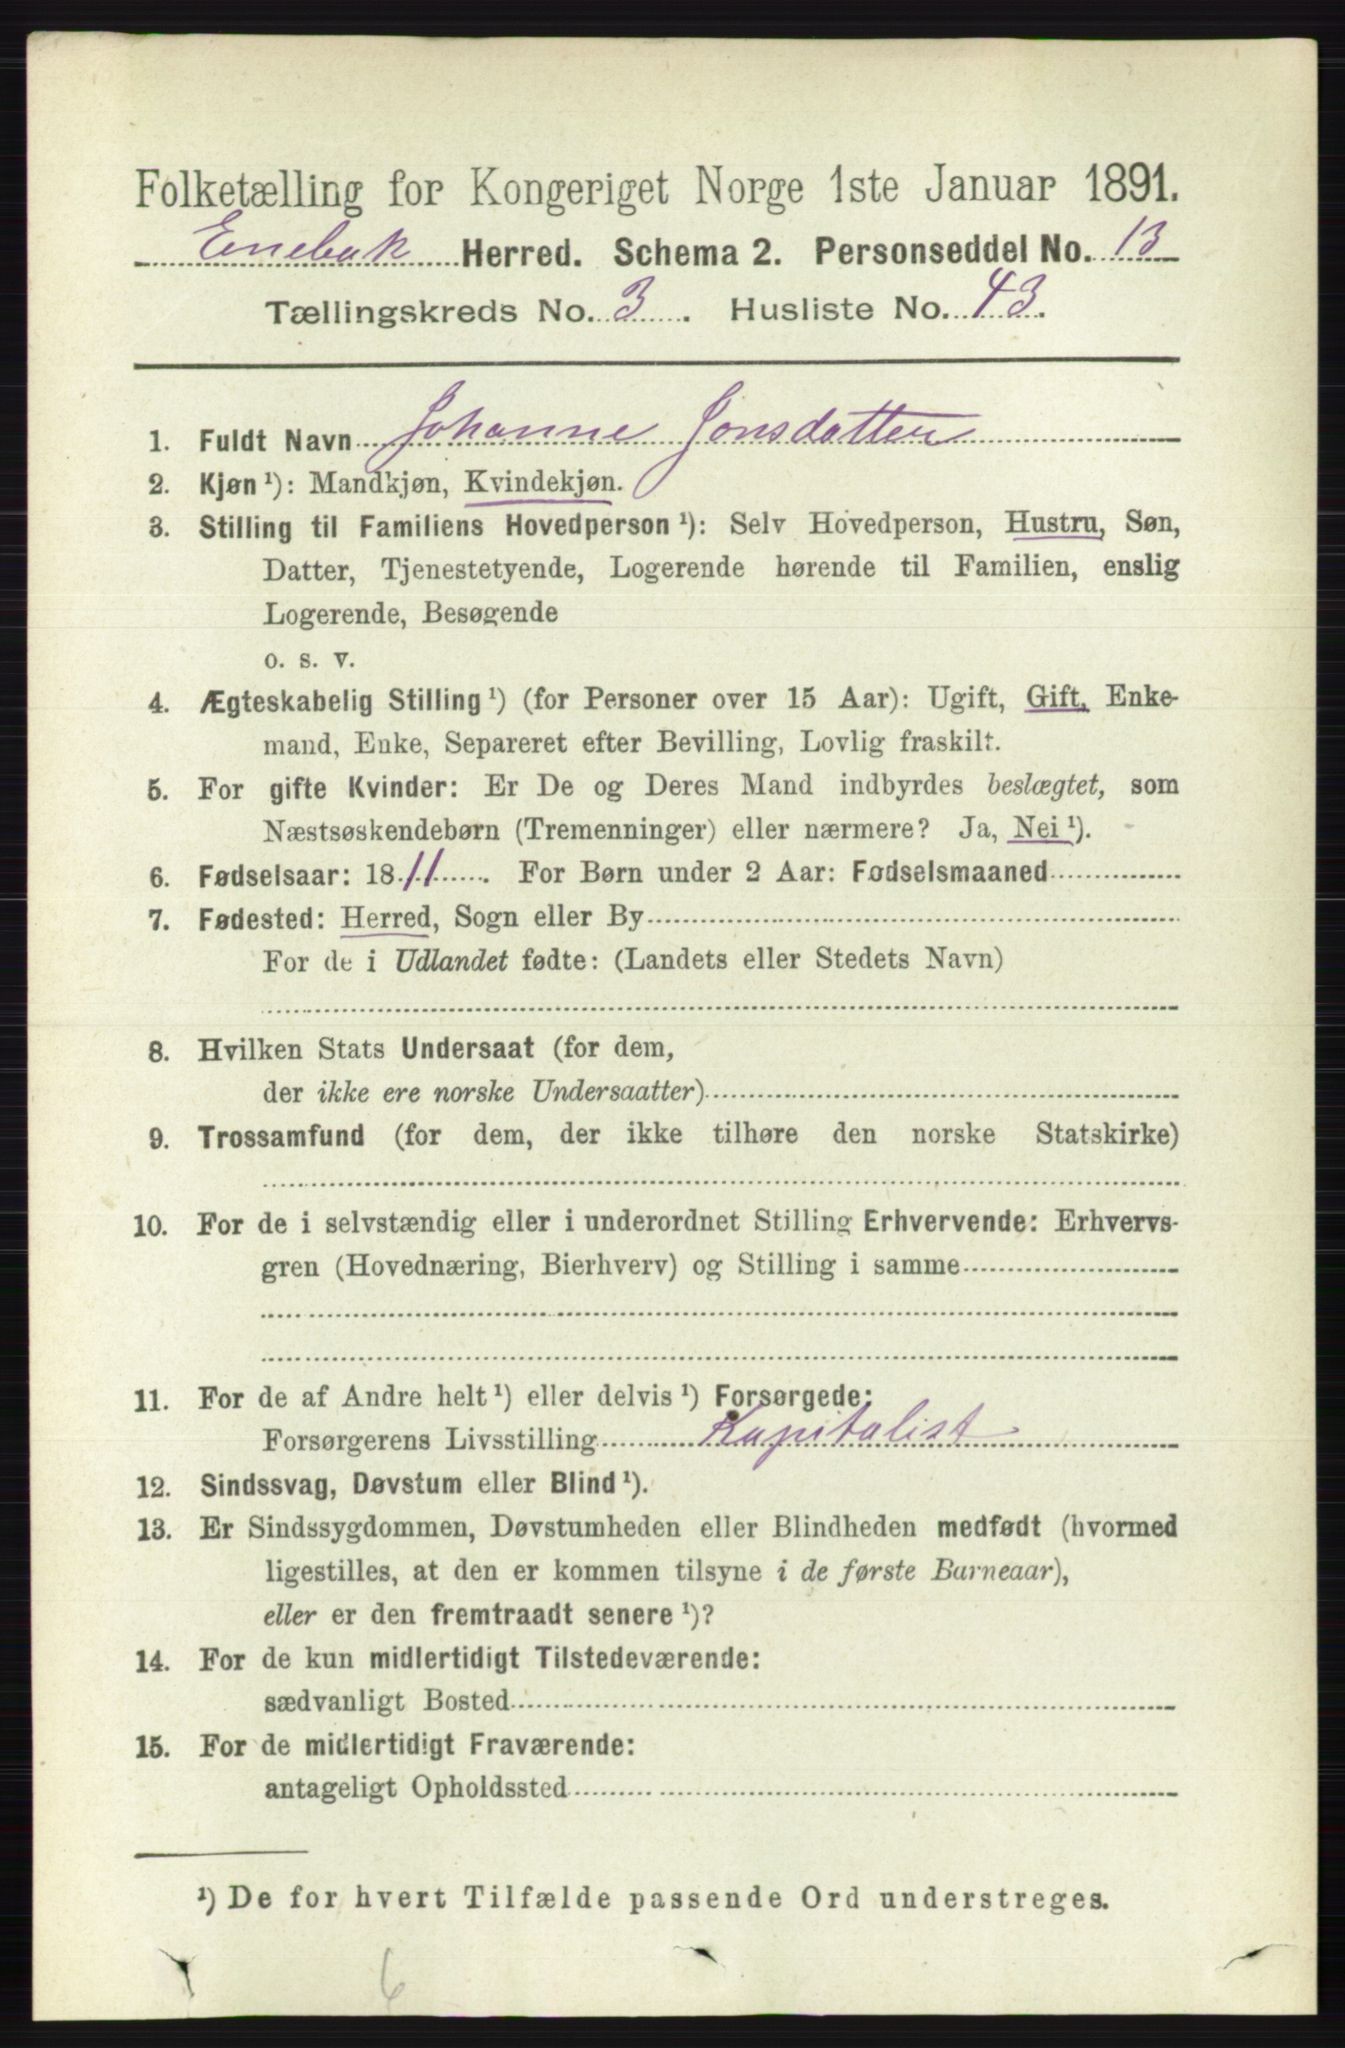 Folketælling for Kongeriget Norge 1ste Januar 1891.
Enebak Herred. Schema 2. Personseddel No. 13
Tællingskreds No. 3. Husliste No. 43.
1. Fuldt Navn Johanne Jonsdatter
2. Kjøn¹): Mandkjøn, Kvindekjøn.
3. Stilling til Familiens Hovedperson¹): Selv Hovedperson, Hustru, Søn,
Datter, Tjenestetyende, Logerende hørende til Familien, enslig
Logerende, Besøgende
o. s. v.
4. Ægteskabelig Stilling¹) (for Personer over 15 Aar): Ugift, Gift, Enke-
mand, Enke, Separeret efter Bevilling, Lovlig fraskilt.
5. For gifte Kvinder: Er De og Deres Mand indbyrdes beslægtet, som
Næstsøskendebørn (Tremenninger) eller nærmere? Ja, Nei¹).
6. Fødselsaar: 1811. For Børn under 2 Aar: Fødselsmaaned
7. Fødested: Herred, Sogn eller By
For de i Udlandet fødte: (Landets eller Stedets Navn)
8. Hvilken Stats Undersaat (for dem,
der ikke ere norske Undersaatter)
9. Trossamfund (for dem, der ikke tilhøre den norske Statskirke)
10. For de i selvstændig eller i underordnet Stilling Erhvervende: Erhvervs-
gren (Hovednæring, Bierhverv) og Stilling i samme
11. For de af Andre helt¹) eller delvis¹) Forsørgede:
Forsørgerens Livsstilling Kapitalist
12. Sindssvag, Døvstum eller Blind¹).
13. Er Sindssygdommen, Døvstumheden eller Blindheden medfødt (hvormed
ligestilles, at den er kommen tilsyne i de første Barneaar),
eller er den fremtraadt senere¹)?
14. For de kun midlertidigt Tilstedeværende:
sædvanligt Bosted
15. For de midlertidigt Fraværende:
antageligt Opholdssted
¹) De for hvert Tilfælde passende Ord understreges.
6